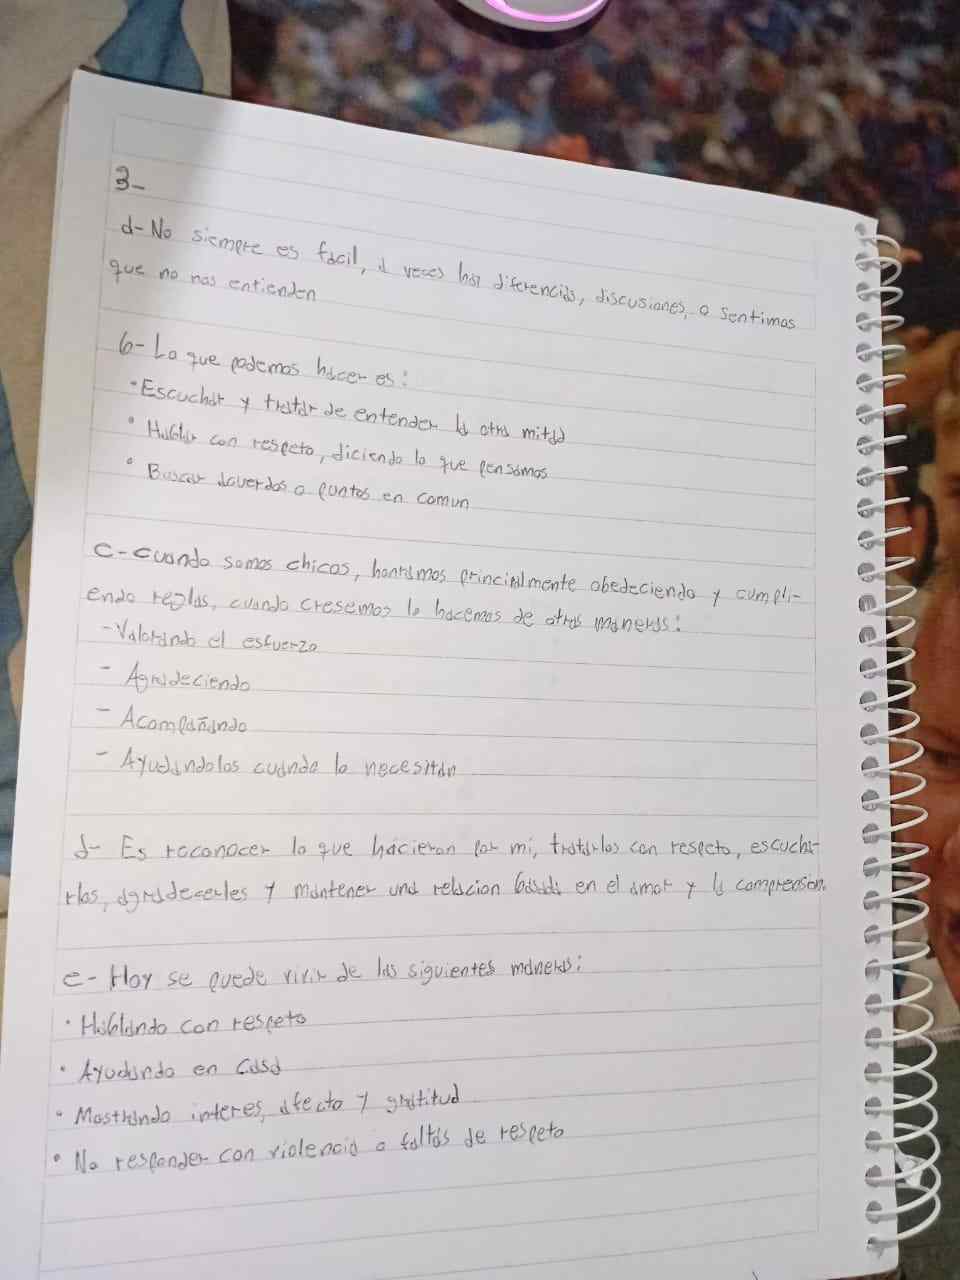 3-
a- No siempre es facil, a veces hay diferencias, discusiones, o sentimos
que no nos entienden
b- Lo que podemos hacer es:
• Escuchar y tratar de entender la otra mitad
• Hablar con respeto, diciendo lo que pensamos
• Buscar acuerdos o puntos en comun
c- cuando somos chicos, honramos principalmente obedeciendo y cumpli-
endo reglas, cuando cresemos lo hacemos de otras maneras:
- Valorando el esfuerzo
- Agradeciendo
- Acompañando
- Ayudandolos cuando lo necesitan
d- Es roconocer lo que hacieron por mi, tratarlos con respeto, escucha-
rlos, agradecerles y mantener una relacion basada en el amor y la comprension.
e- Hoy se puede vivir de las siguientes maneras:
• Hablando con respeto
• Ayudando en casa
• Mostrando interes, afecto y gratitud
• No responder con violencia o faltas de respeto